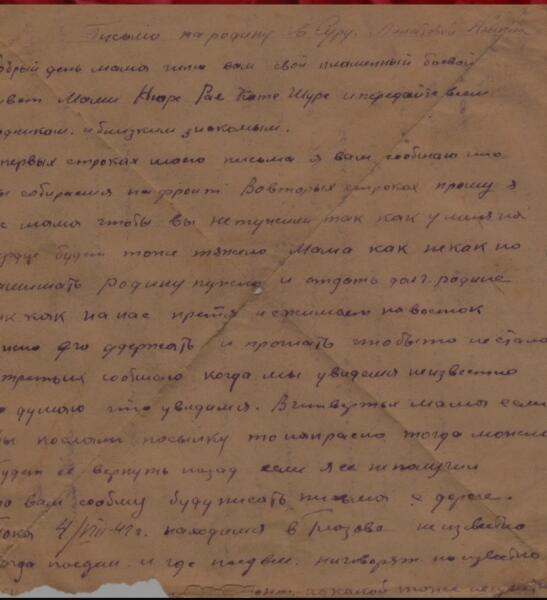 Письмо на родину в Суру.
обрый день мама шлю вам свой пламенный боевой
ивет Маме Нюре Рае Кате Шуре и передайте всем
одником. и близким знакомым.
первых строках моего письма я вам сообщаю что
ы собираемся на фронт. Во вторых строках прошу я
с мама чтобы вы не тужили так как у меня на
ердце будет тоже тяжело Мама как некак но
ащищать Родину нужно и отдать долг. родине
ак как на нас прется и сжимает на восток
ужно его удержать и прогнать чтобы то не стало
третьих сообщаю когда мы увидемся неизвестно
о думаю что увидимся. В четвертых мама если
вы послали посылку то напрасно тогда можно
будет ее вернуть назад если я ее не получу
то вам сообщу буду писать письма с дороге.
Пока 4/VIII-41 г. находимся в неизвестно
огда поедем. и где поедем. неговорят. не известно
какой тоже